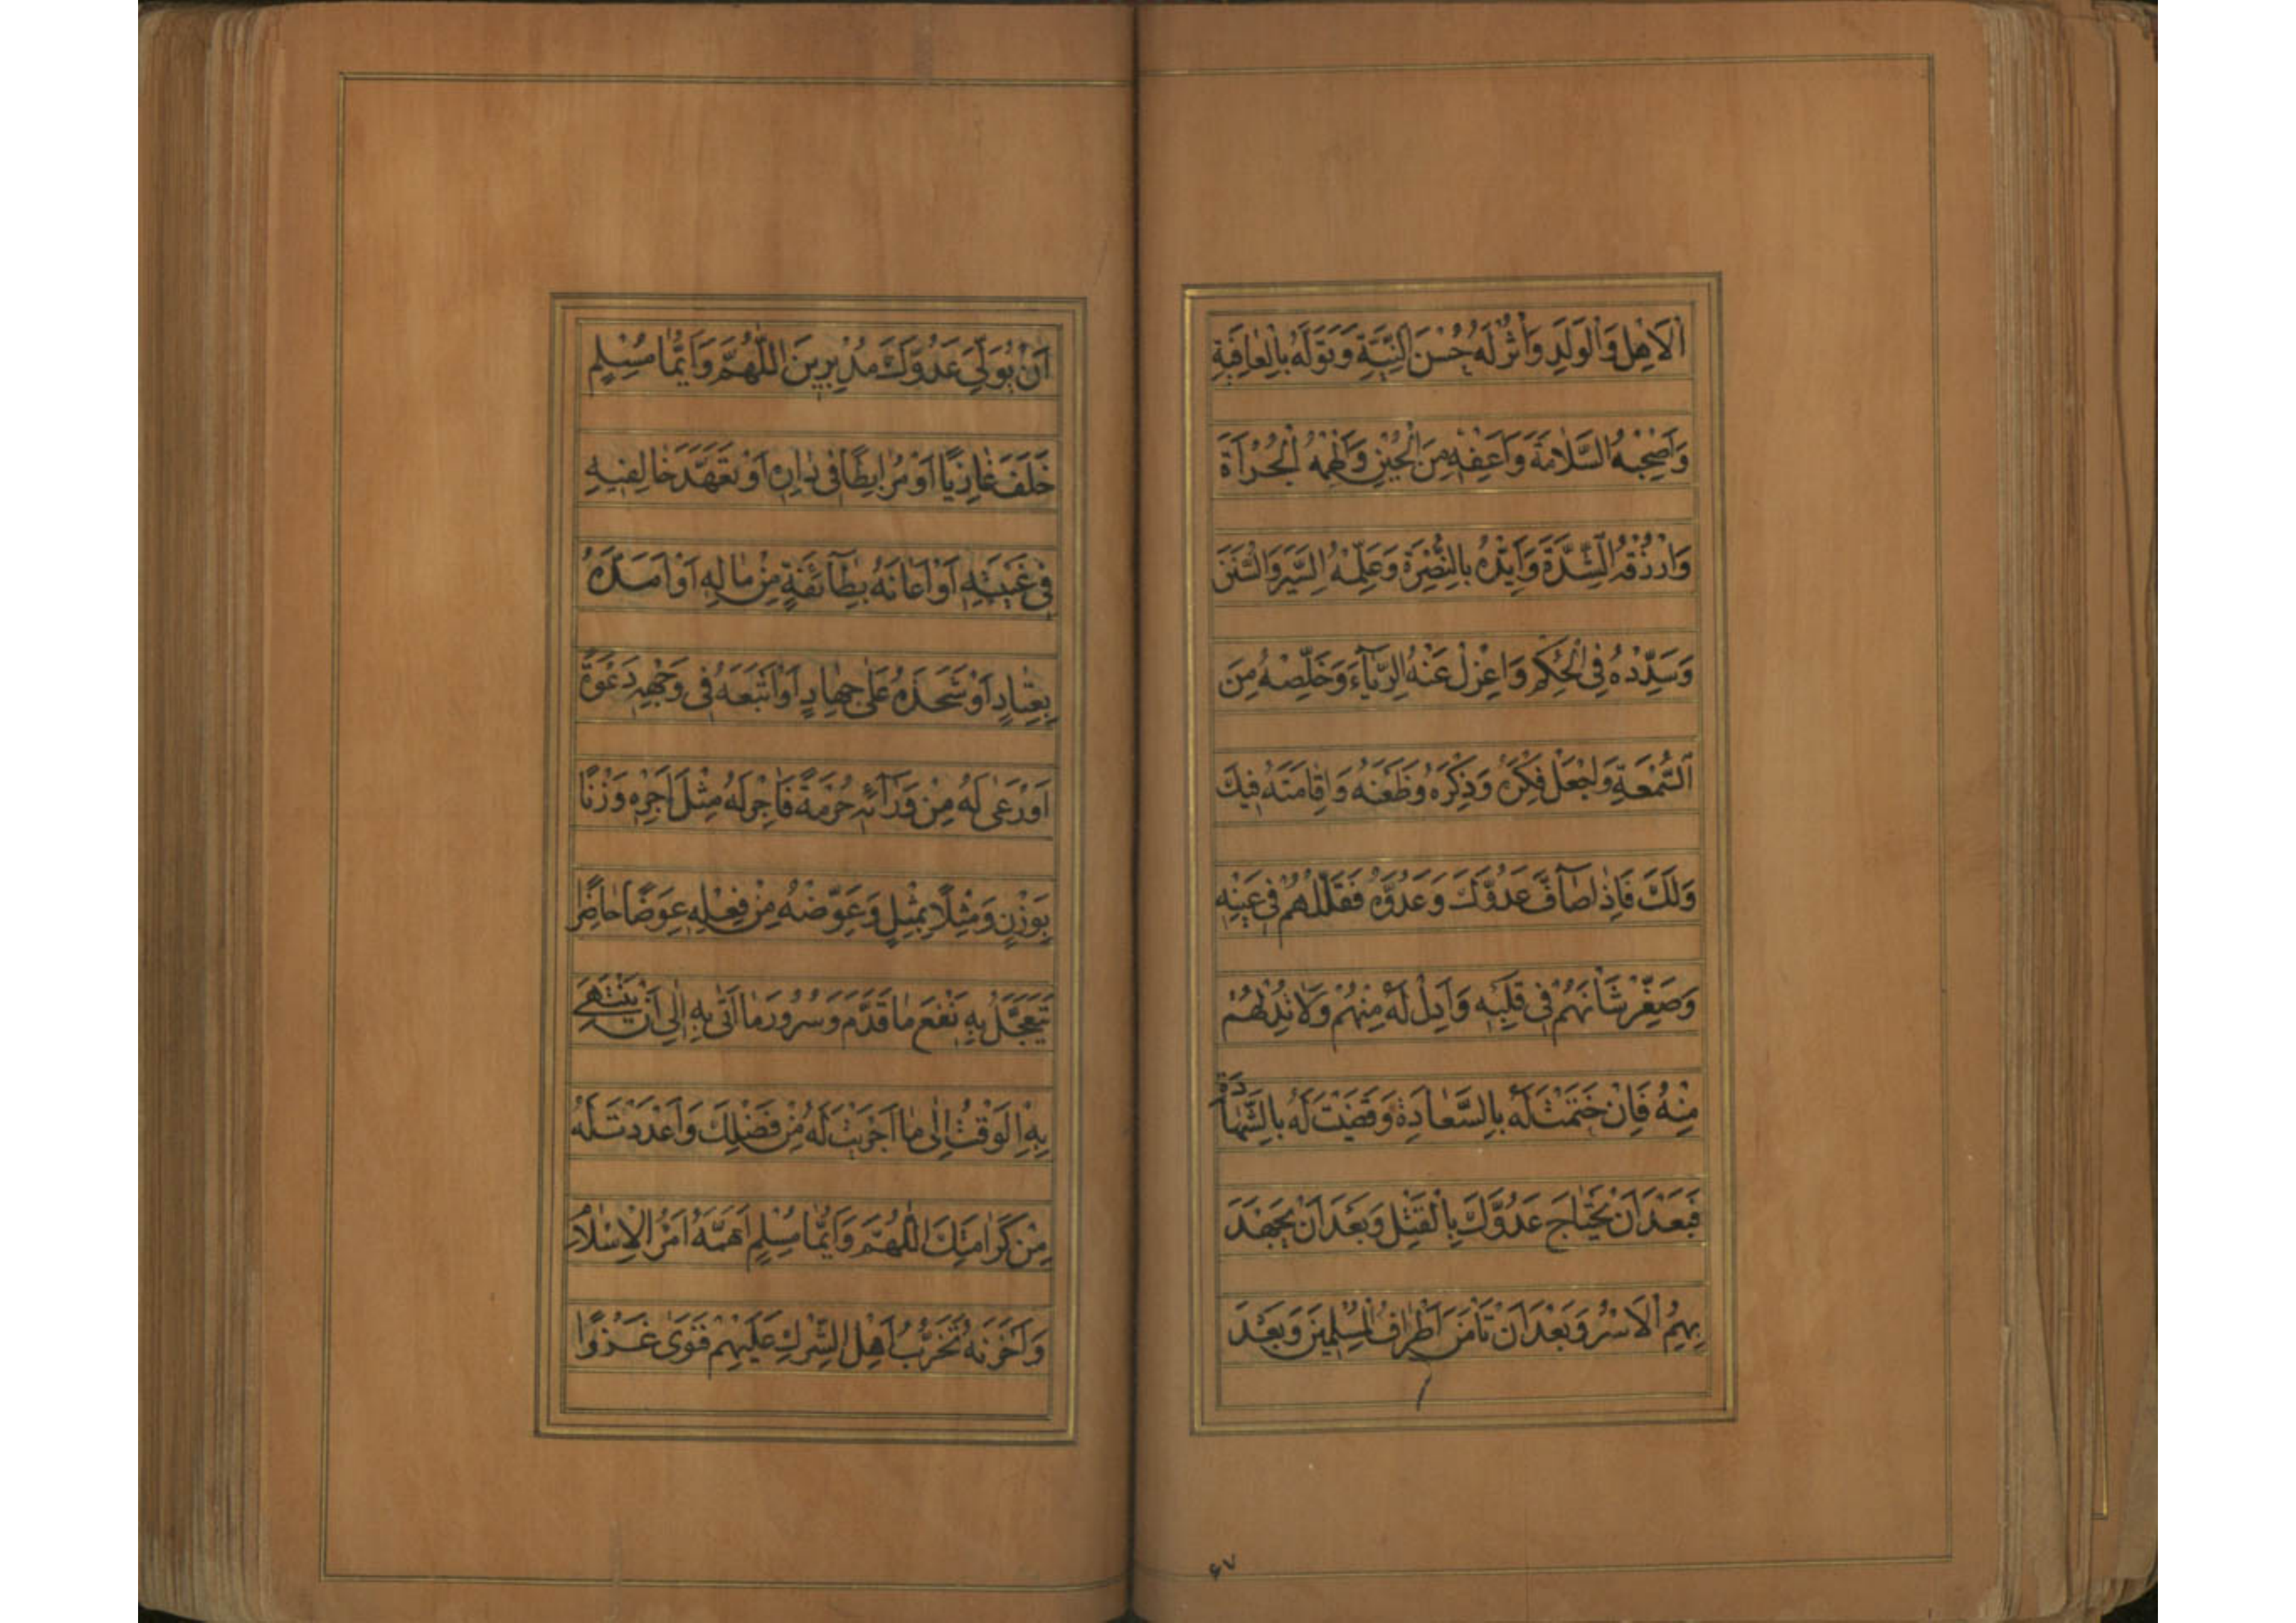 اَلْاَهْلِ وَالْوَلَدِ وَاْثُرْ لَهُ حُسْنَ النِّيَّةِ وَتَوَلَّهُ بِالْعَافِيَةِ
وَاَصْحِبْهُ السَّلَامَةَ وَاَعْفِهِ مِنَ الْجُبْنِ وَاَلْهِمْهُ الْجُرْاَةَ
وَارْزُقْهُ الشِّدَّةَ وَاَيِّدْهُ بِالنُّصْرَةِ وَعَلِّمْهُ السِّيَرَ وَالسُّنَنَ
وَسَدِّدْهُ فِي الْحُكْمِ وَاعْزِلْ عَنْهُ الرِّيَاءَ وَخَلِّصْهُ مِنَ
السُّمْعَةِ وَاجْعَلْ فِكْرَهُ وَذِكْرَهُ وَظَعْنَهُ وَاِقَامَتَهُ فِيكَ
وَلَكَ فَاِذَا صَآفَّ عَدُوَّكَ وَعَدُوَّهُ فَقَلِّلْهُمْ فِي عَيْنِهِ
وَصَغِّرْ شَاْنَهُمْ فِي قَلْبِهِ وَاَدِلْ لَهُ مِنْهُمْ وَلَا تُدِلْهُمْ
مِنْهُ فَاِنْ خَتَمْتَ لَهُ بِالسَّعَادَةِ وَقَضَيْتَ لَهُ بِالشَّهَادَةِ
فَبَعْدَ اَنْ يَجْتَاحَ عَدُوَّكَ بِالْقَتْلِ وَبَعْدَ اَنْ يَجْهَدَ
بِهِمُ الْاَسْرُ وَبَعْدَ اَنْ تَاْمَنَ اَطْرَافُ الْمُسْلِمِينَ وَبَعْدَ
۶۷
اَنْ يُوَلِّيَ عَدُوَّكَ مُدْبِرِينَ اَللّٰهُمَّ وَاَيُّمَا مُسْلِمٍ
خَلَفَ غَازِيًا اَوْ مُرَابِطًا فِي دَارِهِ اَوْ تَعَهَّدَ خَالِفِيهِ
فِي غَيْبَتِهِ اَوْ اَعَانَهُ بِطَآئِفَةٍ مِنْ مَالِهِ اَوْ اَمَدَّهُ
بِعِتَادٍ اَوْ شَحَذَهُ عَلٰى جِهَادٍ اَوْ اَتْبَعَهُ فِي وَجْهِهِ دَعْوَةً
اَوْ رَعٰى لَهُ مِنْ وَرَآئِهِ حُرْمَةً فَاَجْرِ لَهُ مِثْلَ اَجْرِهِ وَزْنًا
بِوَزْنٍ وَمِثْلًا بِمِثْلٍ وَعَوِّضْهُ مِنْ فِعْلِهِ عِوَضًا حَاضِرًا
يَتَعَجَّلُ بِهِ نَفْعَ مَا قَدَّمَ وَسُرُورَ مَا اَتٰى بِهِ اِلٰى اَنْ يَنْتَهِيَ
بِهِ الْوَقْتُ اِلٰى مَا اَجْرَيْتَ لَهُ مِنْ فَضْلِكَ وَاَعْدَدْتَ لَهُ
مِنْ كَرَامَتِكَ اَللّٰهُمَّ وَاَيُّمَا مُسْلِمٍ اَهَمَّهُ اَمْرُ الْاِسْلَامِ
وَاَحْزَنَهُ تَحَزُّبُ اَهْلِ الشِّرْكِ عَلَيْهِمْ فَنَوٰى غَزْوًا